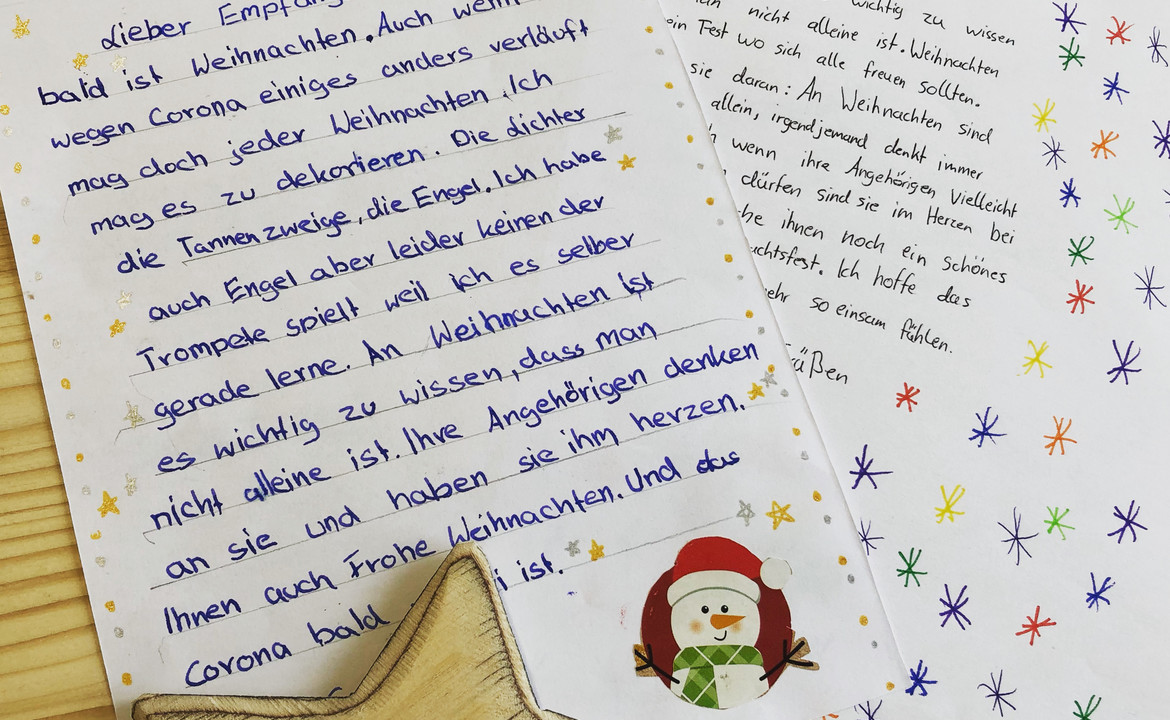 Lieber Empfäng
bald ist Weihnachten. Auch wenn
wegen Corona einiges anders verläuft
mag doch jeder Weihnachten. Ich
mag es zu dekorieren. Die Lichter
die Tannenzweige, die Engel. Ich habe
auch Engel aber leider keinen der
Trompete spielt weil ich es selber
gerade lerne. An Weihnachten ist
es wichtig zu wissen, dass man
nicht alleine ist. Ihre Angehörigen denken
an sie und haben sie ihm herzen.
Ihnen auch Frohe Weihnachten. Und das
Corona bald i ist.
wichtig zu wissen
nicht alleine ist. Weihnachten
ein Fest wo sich alle freuen sollten.
sie daran: An Weihnachten sind
allein, irgendjemand denkt immer
wenn ihre Angehörigen vielleicht
dürfen sind sie im Herzen bei
he ihnen noch ein schönes
achtsfest. Ich hoffe das
ehr so einsam fühlen.
üßen